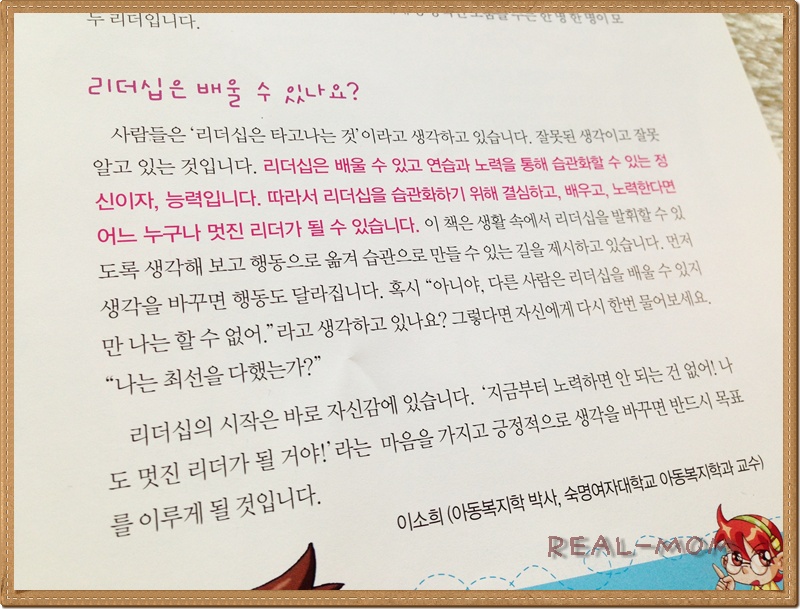 누 리더입니다.
리더십은 배울 수 있나요?
사람들은 ‘리더십은 타고나는 것’이라고 생각하고 있습니다. 잘못된 생각이고 잘못
알고 있는 것입니다. 리더십은 배울 수 있고 연습과 노력을 통해 습관화할 수 있는 정
신이자, 능력입니다. 따라서 리더십을 습관화하기 위해 결심하고, 배우고, 노력한다면
어느 누구나 멋진 리더가 될 수 있습니다. 이 책은 생활 속에서 리더십을 발휘할 수 있
도록 생각해 보고 행동으로 옮겨 습관으로 만들 수 있는 길을 제시하고 있습니다. 먼저
생각을 바꾸면 행동도 달라집니다. 혹시 “아니야, 다른 사람은 리더십을 배울 수 있지
만 나는 할 수 없어.”라고 생각하고 있나요? 그렇다면 자신에게 다시 한번 물어보세요.
“나는 최선을 다했는가?”
리더십의 시작은 바로 자신감에 있습니다. ‘지금부터 노력하면 안 되는 건 없어! 나
도 멋진 리더가 될 거야!’라는 마음을 가지고 긍정적으로 생각을 바꾸면 반드시 목표
를 이루게 될 것입니다.
이소희 (아동복지학 박사, 숙명여자대학교 아동복지학과 교수)
REAL-MOM